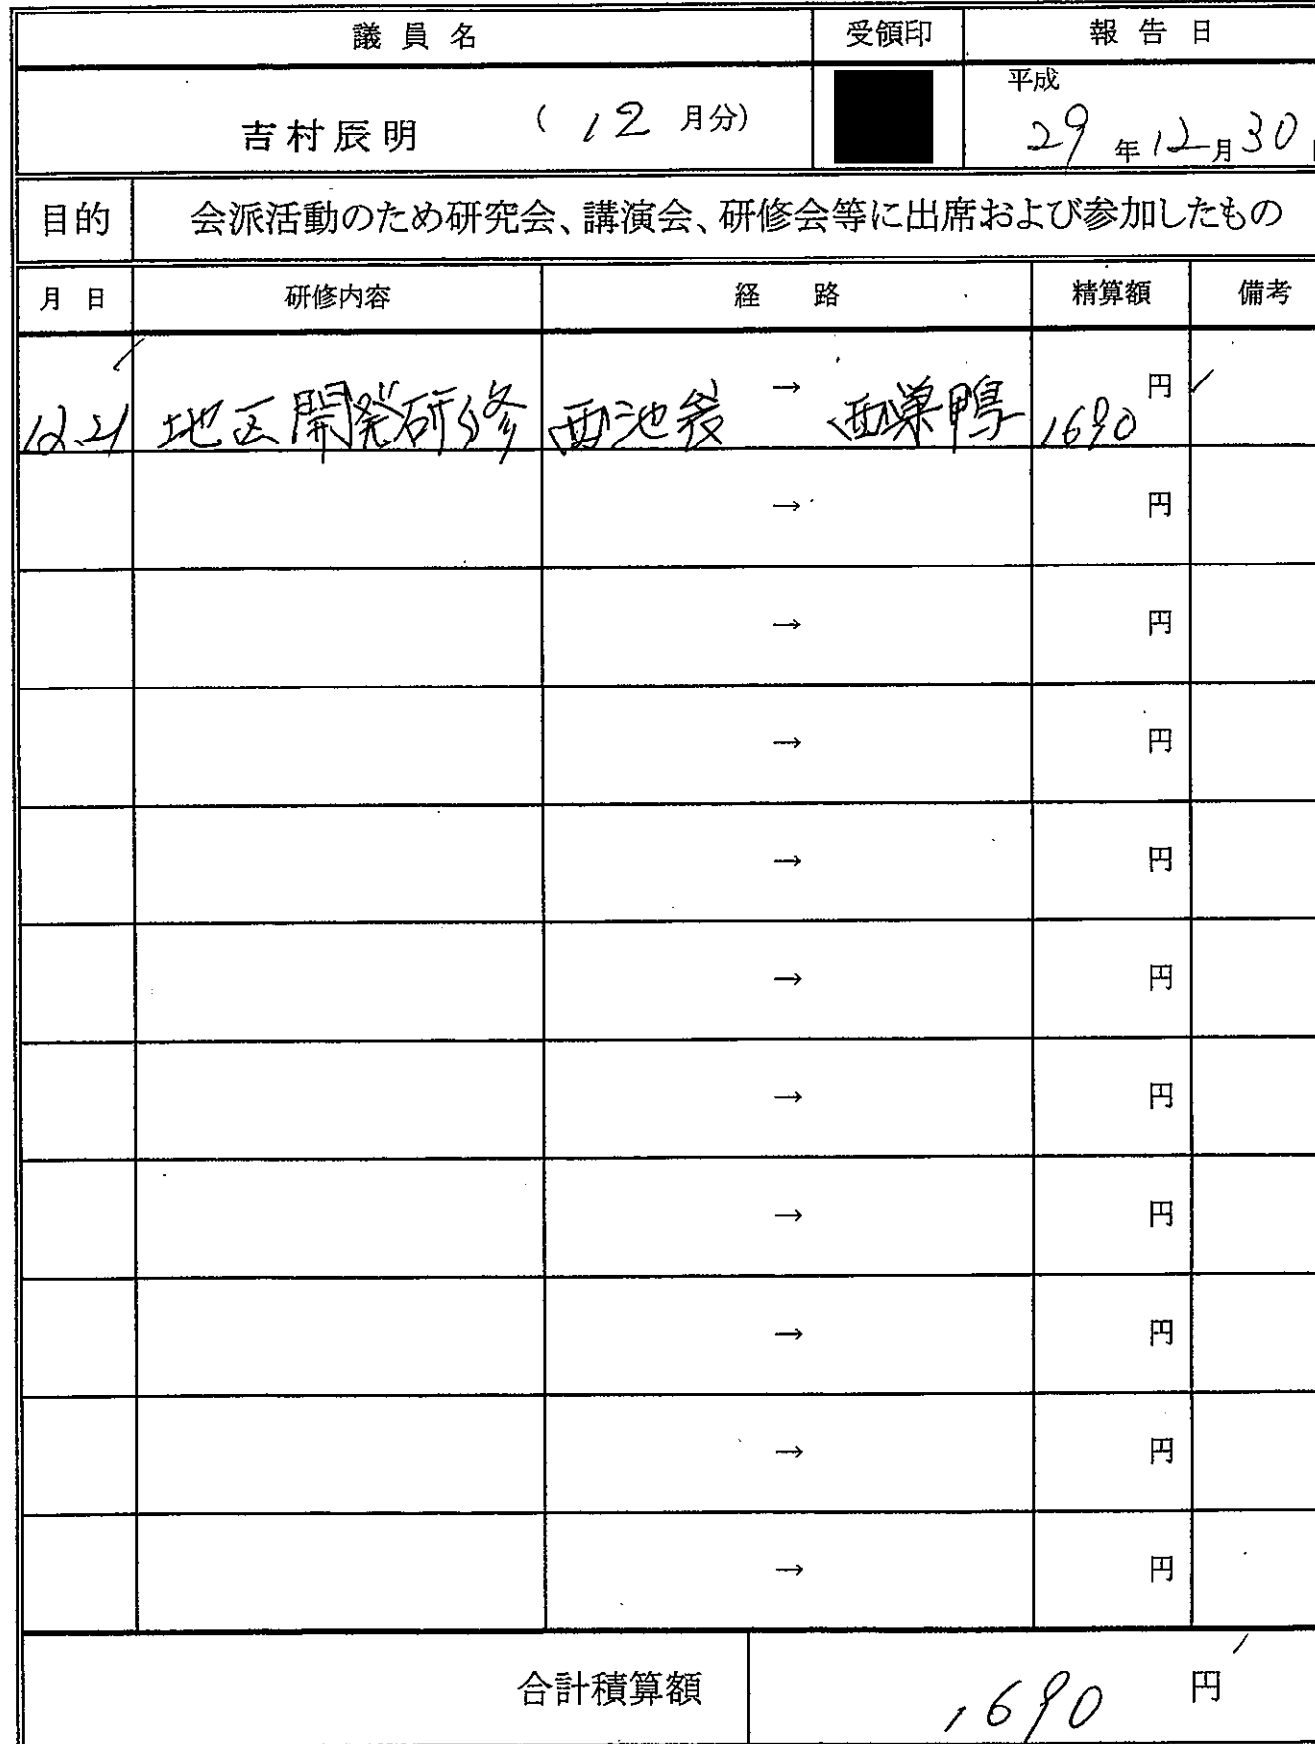 議員名 受領印 報告日
吉村辰明 (12月分) 平成29年12月30
目的 会派活動のため研究会、講演会、研修会等に出席および参加したもの
月日 研修内容 経路 精算額 備考
12.21 地区開発研修 西池袋 → 西巣鴨 1690円
→ 円
→ 円
→ 円
→ 円
→ 円
→ 円
→ 円
→ 円
→ 円
→ 円
合計積算額 1690円